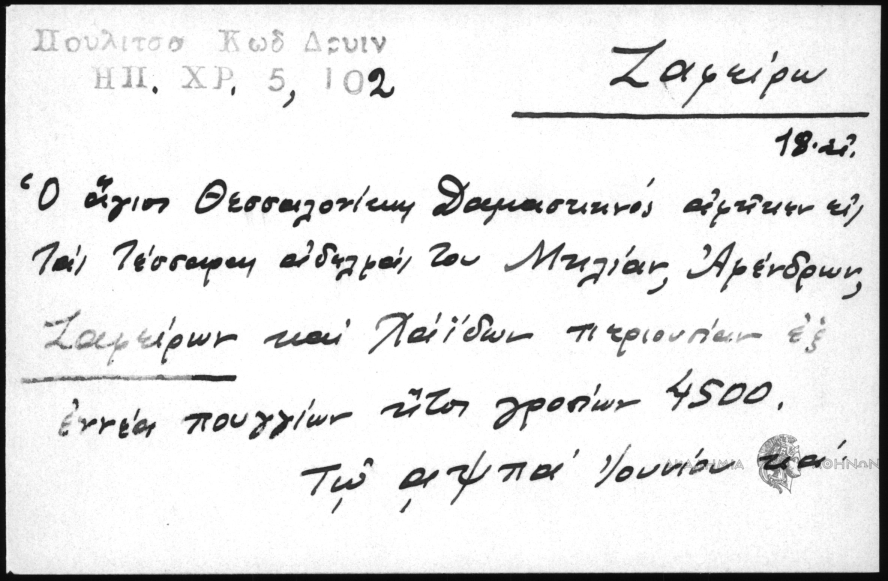 Πουλιτσα Κωδ Δρυιν
ΗΠ. ΧΡ. 5, 102
Ζαφείρω
18. αἰ.
Ὁ ἅγιος Θεσσαλονίκης Δαμασκηνός ἀφῆκεν εἰς
τάς τέσσαρας ἀδελφάς του Μηλιάν, Ἀρένδρων,
Ζαφείρων καί Χάϊδων περιουσίαν ἐξ
ἐννέα πουγγίων ἤτοι γροσίων 4500.
Τῷ αψπα Ἰουνίου κα.
ΑΚΑΔΗΜΙΑ ΑΘΗΝΩΝ